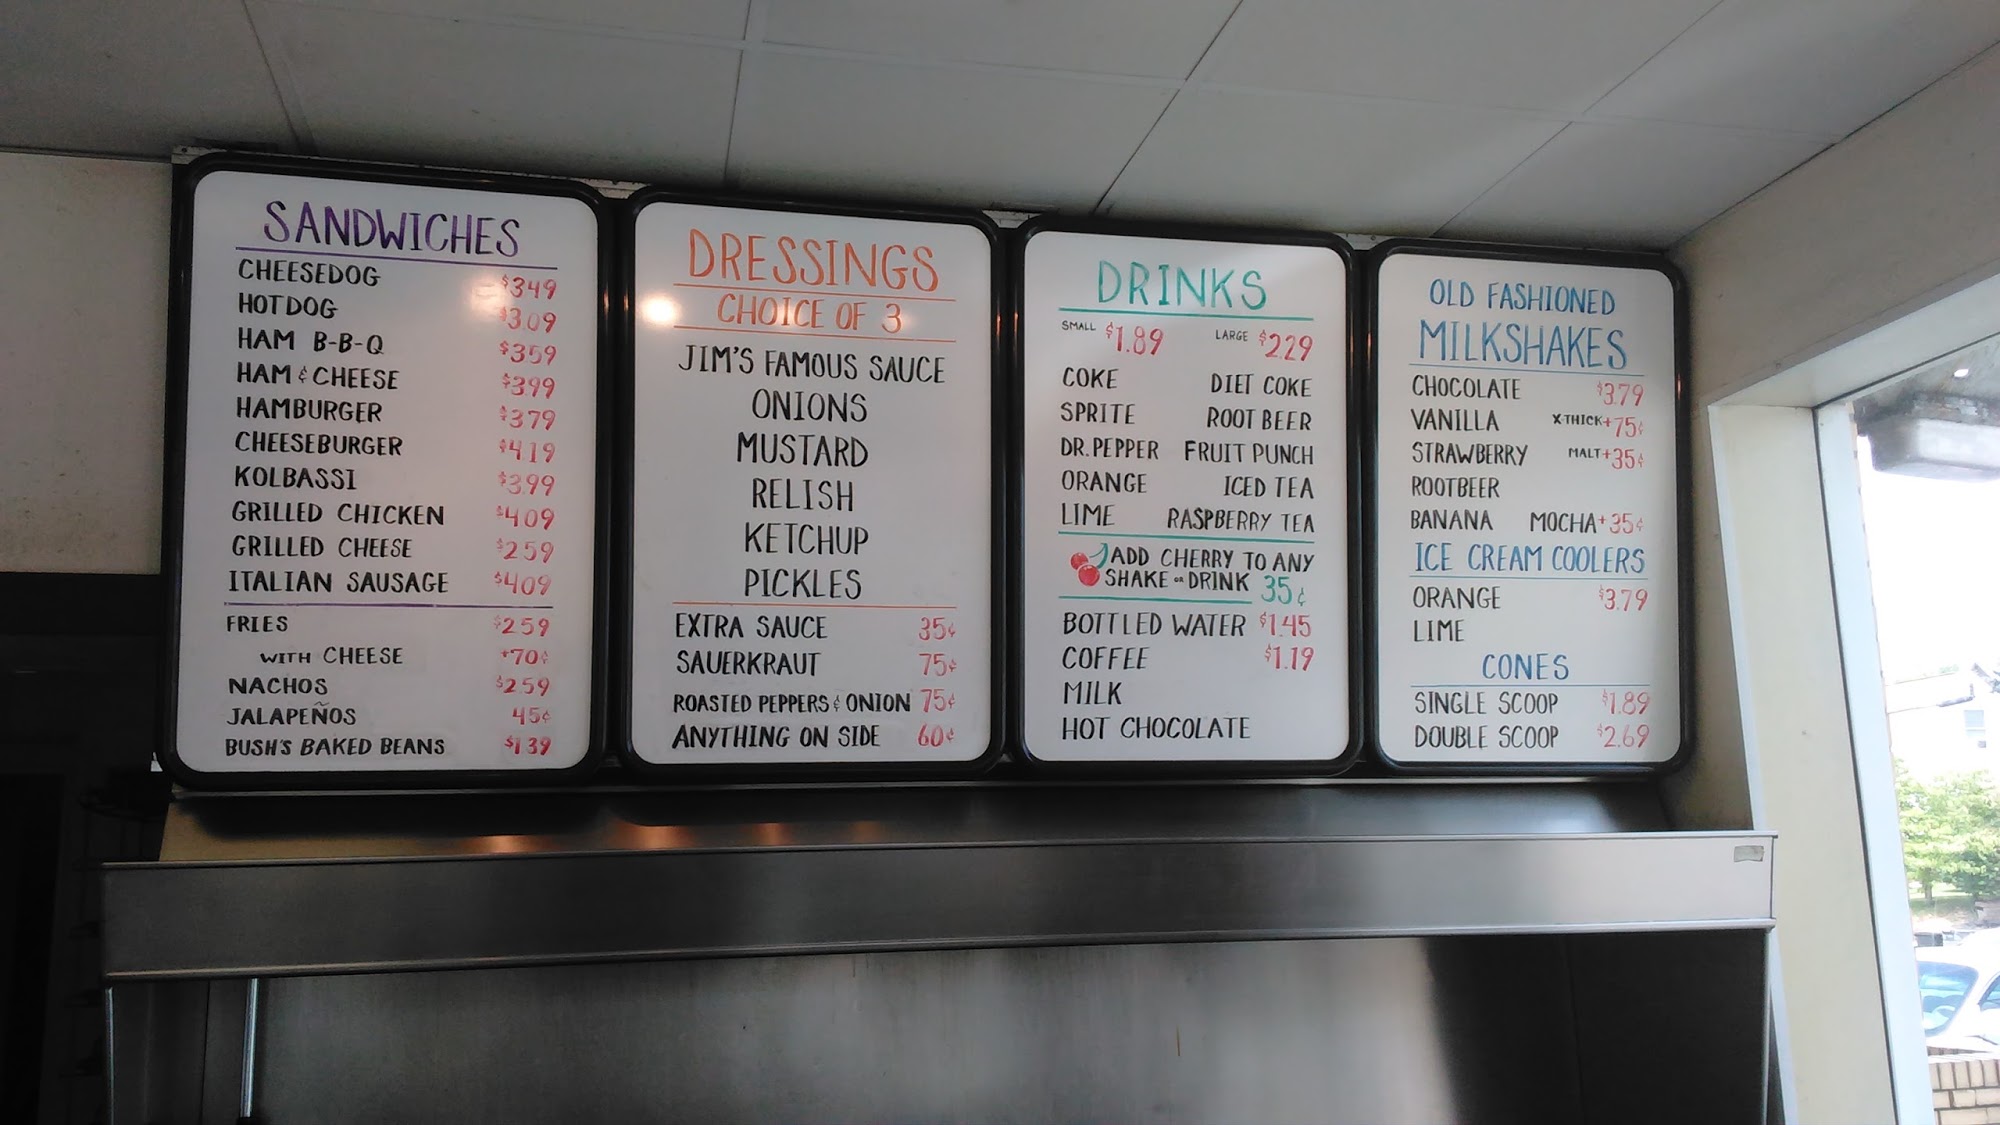 SANDWICHES
CHEESEDOG $3.49
HOT DOG $3.09
HAM B-B-Q $3.59
HAM & CHEESE $3.99
HAMBURGER $3.79
CHEESEBURGER $4.19
KOLBASSI $3.99
GRILLED CHICKEN $4.09
GRILLED CHEESE $2.59
ITALIAN SAUSAGE $4.09
FRIES $2.59
WITH CHEESE +70¢
NACHOS $2.59
JALAPEÑOS 45¢
BUSH'S BAKED BEANS $1.39
DRESSINGS
CHOICE OF 3
JIM'S FAMOUS SAUCE
ONIONS
MUSTARD
RELISH
KETCHUP
PICKLES
EXTRA SAUCE 35¢
SAUERKRAUT 75¢
ROASTED PEPPERS & ONION 75¢
ANYTHING ON SIDE 60¢
DRINKS
SMALL $1.89 LARGE $2.29
COKE DIET COKE
SPRITE ROOT BEER
DR. PEPPER FRUIT PUNCH
ORANGE ICED TEA
LIME RASPBERRY TEA
ADD CHERRY TO ANY
SHAKE OR DRINK 35¢
BOTTLED WATER $1.45
COFFEE $1.19
MILK
HOT CHOCOLATE
OLD FASHIONED
MILKSHAKES
CHOCOLATE $3.79
VANILLA X-THICK +75¢
STRAWBERRY MALT +35¢
ROOTBEER
BANANA MOCHA +35¢
ICE CREAM COOLERS
ORANGE $3.79
LIME
CONES
SINGLE SCOOP $1.89
DOUBLE SCOOP $2.69